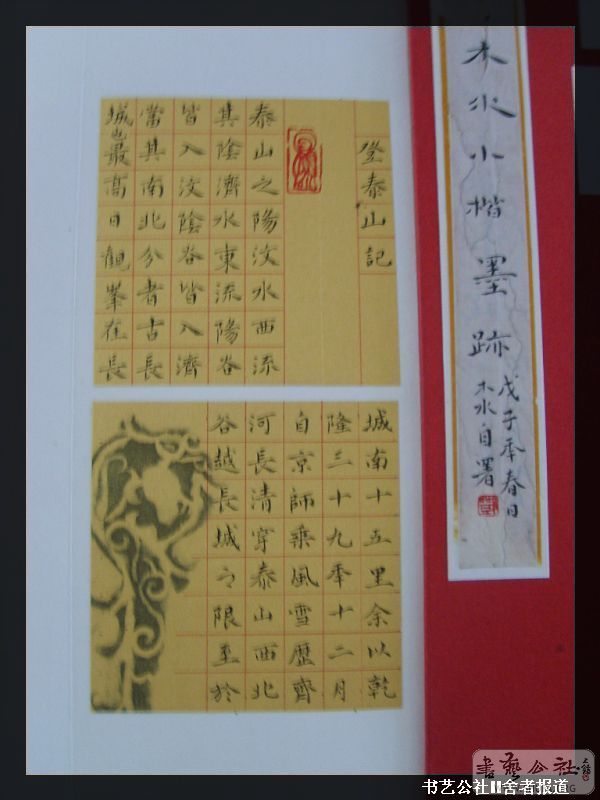 木水小楷墨跡
戊子年春日
木水自署
登泰山記
泰山之陽汶水西流
其陰濟水東流陽谷
皆入汶陰谷皆入濟
當其南北分者古長
城也最高日觀峯在長
城南十五里余以乾
隆三十九年十二月
自京師乘風雪歷齊
河長清穿泰山西北
谷越長城之限至於
書藝公社
书艺公社II舍者报道